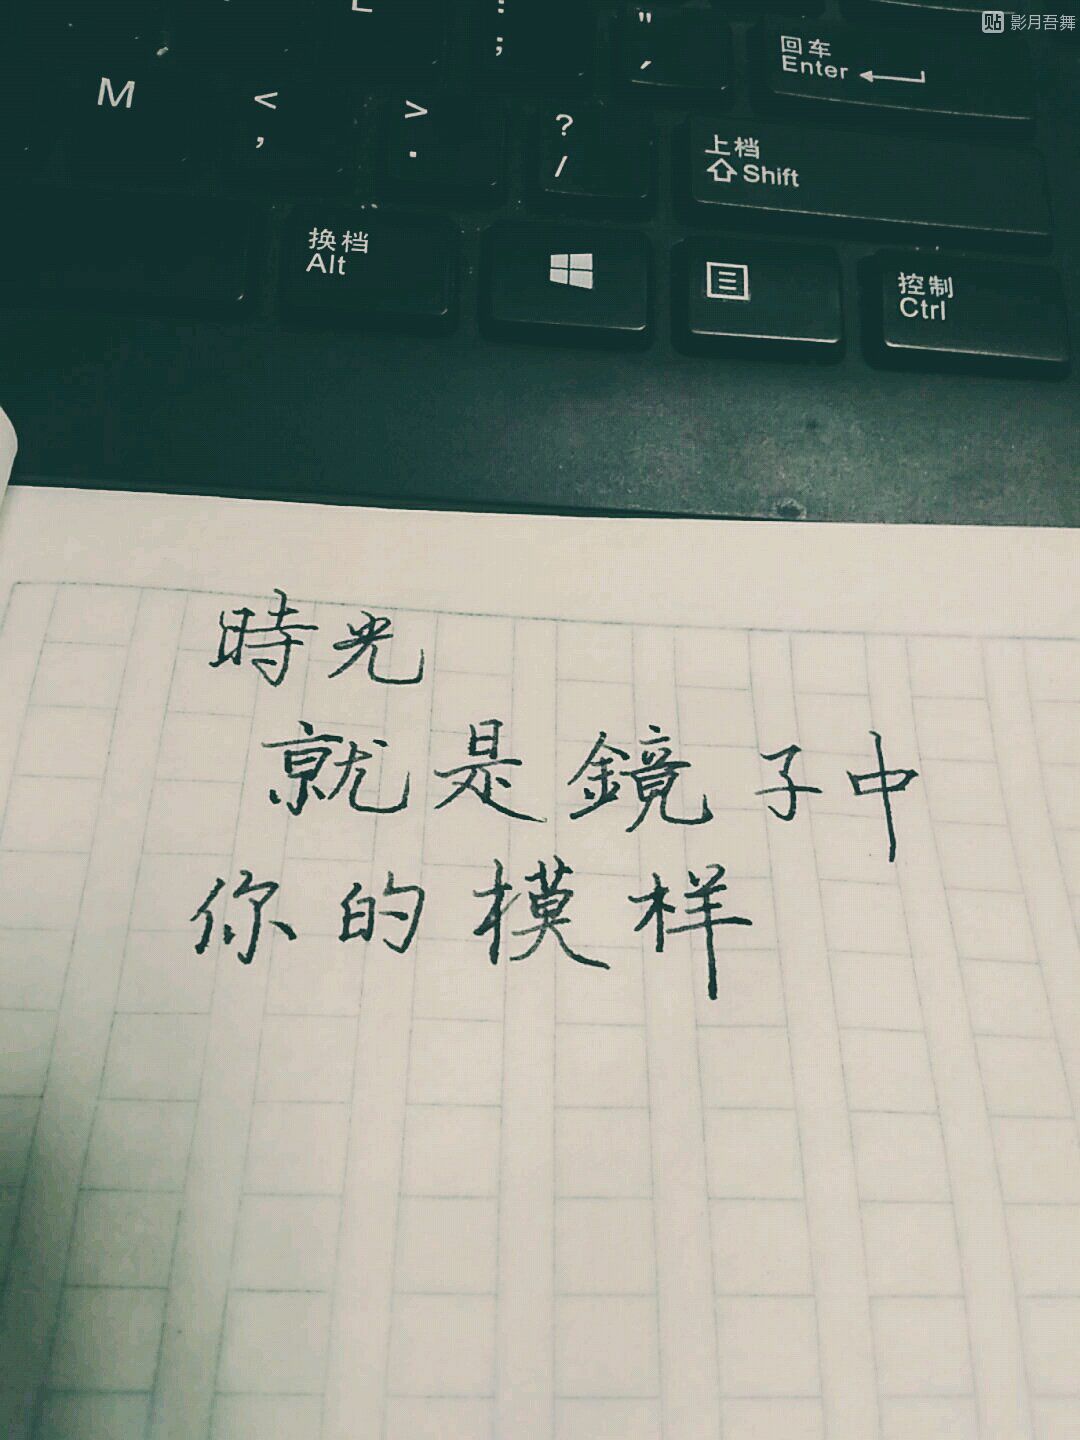 贴 影月吾舞
" '
: ;
回车
Enter
M
< ,
> .
? /
上档
Shift
换档
Alt
控制
Ctrl
時光
就是鏡子中
你的模样